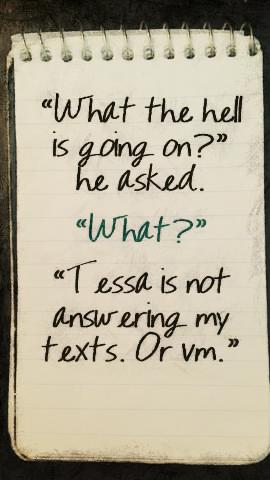 “What the hell
is going on?”
he asked.
“What?”
“Tessa is not
answering my
texts. Or vm.”